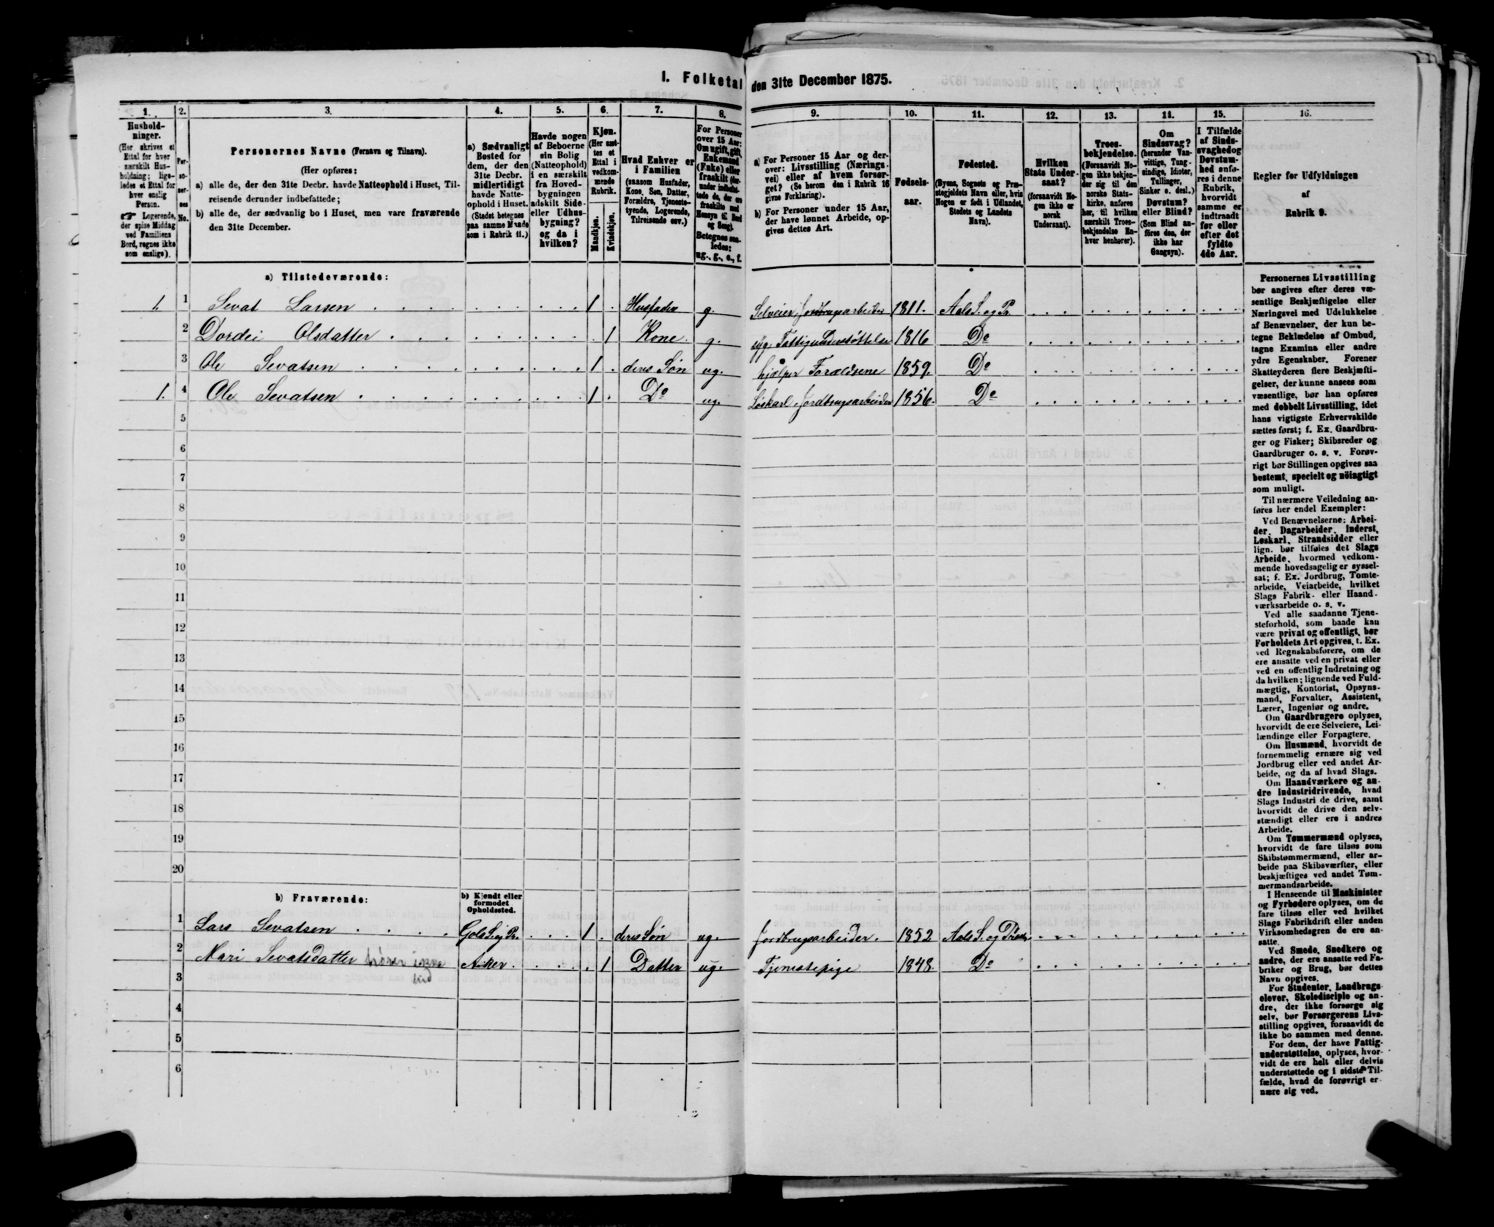 1. Folketal den 31te December 1875.
1. 2. 3. 4. 5. 6. 7. 8. 9. 10. 11. 12. 13. 14. 15. 16.
Hushold-
ninger.
(Her skrives et
Ettal for hver
særskilt Hus-
holdning; lige-
ledes et Ettal for
hver enslig
Person.
Logerende,
der spise Middag
ved Familiens
Bord, regnes ikke
som enslige).
Per-
so-
ner-
nes
No.
Personernes Navne (Fornavn og Tilnavn).
(Her opføres:
a) alle de, der den 31te Decbr. havde Natteophold i Huset, Til-
reisende derunder indbefattede;
b) alle de, der sædvanlig bo i Huset, men vare fraværende
den 31te December.
a) Sædvanligt
Bosted for
dem, der den
31te Decbr.
midlertidigt
havde Natte-
ophold i Huset.
(Stedet betegnes
paa samme Maade
som i Rubrik 11.)
Havde nogen
af Beboerne
sin Bolig
(Natteophold)
i en særskilt
fra Hoved-
bygningen
adskilt Side-
eller Udhus-
bygning?
og da i
hvilken?
Kjøn.
(Her sæt-
tes et
Ettal i
vedkom-
mende
Rubrik.
Mandkjøn.
Kvindekjøn.
Hvad Enhver er
i Familien
(saasom Husfader,
Kone, Søn, Datter,
Forældre, Tjeneste-
tyende, Logerende,
Tilreisende osv.)
For Personer
over 15 Aar:
Om ugift, gift,
Enkemand
(Enke) eller
fraskilt
Betegnes saa-
ledes:
ug., g., e., f.
a) For Personer 15 Aar og der-
over: Livsstilling (Nærings-
vei) eller af hvem forsør-
get? (Se herom den i Rubrik 16
givne Forklaring).
b) For Personer under 15 Aar,
der have lønnet Arbeide, op-
gives dettes Art.
Fødsels-
aar.
Fødested.
(Byens, Sognets og Præ-
stegjeldets Navn eller, hvis
Nogen er født i Udlandet,
Stedets og Landets
Navn).
Hvilken
Stats Under-
saat?
(forsaavidt No-
gen ikke er
norsk
Undersaat).
Troes-
bekjendelse.
(Forsaavidt No-
gen ikke bekjen-
der sig til den
norske Stats-
kirke, anføres
her, til hvilken
særskilt Troes-
bekjendelse En-
hver henhører).
Om
Sindssvag?
(herunder Van-
vittige, Tung-
sindige, Idioter,
Tullinger,
Sinker o. desl.)
Døvstum?
eller Blind?
(Som Blind an-
føres den, der
ikke har
Gangsyn).
I Tilfælde
af Sinds-
svaghed og
Døvstum-
hed anfø-
res i denne
Rubrik,
hvorvidt
samme er
indtraadt
før eller
efter det
fyldte
4de Aar.
Regler for Udfyldningen
af
Rubrik 9.
a) Tilstedeværende:
1. 1 Sevat Larsen 1 Husfader g. Selveier, Jordbrugsarbeider 1811. Aals S. og Pr.
2 Dordei Olsdatter 1 Kone g. Fattigunderstøttelse 1816 Do
3 Ole Sevatsen 1 deres Søn ug. hjælper Forældrene 1859. Do
1. 4 Ole Sevatsen 1 Do ug. Løskarl, Jordbrugsarbeider 1856. Do
5
6
7
8
9
10
11
12
13
14
15
16
17
18
19
20
b) Fraværende:
b) Kjendt eller
formodet
Opholdssted.
1 Lars Sevatsen Gols S. og Pr. 1 deres Søn ug. Jordbrugsarbeider. 1852 Aals S. og
2 Mari Sevatsdatter hører igne ind Asker 1 Datter ug. Tjenestepige 1848. Do
3
4
5
6
Personernes Livsstilling
bør angives efter deres væ-
sentlige Beskjæftigelse eller
Næringsvei med Udelukkelse
af Benævnelser, der kun be-
tegne Beklædelse af Ombud,
tagne Examina eller andre
ydre Egenskaber. Forener
Skatteyderen flere Beskjæfti-
gelser, der kunne ansees som
væsentlige, bør han opføres
med dobbelt Livsstilling, idet
hans vigtigste Erhvervskilde
sættes først; f. Ex. Gaardbru-
ger og Fisker; Skibsreder og
Gaardbruger o. s. v. Forøv-
rigt bør Stillingen opgives saa
bestemt, specielt og nöiagtigt
som muligt.
Til nærmere Veiledning an-
føres her endel Exempler:
Ved Benævnelserne: Arbei-
der, Dagarbeider, Inderst,
Løskarl, Strandsidder eller
lign. bør tilføies det Slags
Arbeide, hvormed vedkom-
mende hovedsagelig er syssel-
sat; f. Ex. Jordbrug, Tomte-
arbeide, Veiarbeide, hvilket
Slags Fabrik- eller Haand-
værksarbeide o. s. v.
Ved alle saadanne Tjene-
steforhold, som baade kan
være privat og offentligt, bør
Forholdets Art opgives, t. Ex.
ved Regnskabsførere, om de
ere ansatte ved en privat eller
ved en offentlig Indretning og
da hvilken; lignende ved Fuld-
mægtig, Kontorist, Opsyns-
mand, Forvalter, Assistent,
Lærer, Ingeniør og andre.
Om Gaardbrugere oplyses,
hvorvidt de ere Selveiere, Lei-
lændinge eller Forpagtere.
Om Husmænd, hvorvidt de
fornemmelig ernære sig ved
Jordbrug eller ved andet Ar-
beide, og da af hvad Slags.
Om Haandværkere og an-
dre industridrivende, hvad
Slags Industri de drive, samt
hvorvidt de drive den selv-
stændigt eller ere i andres
Arbeide.
Om Tømmermænd oplyses,
hvorvidt de fare tilsøs som
Skibstømmermænd, eller ar-
beide paa Skibsværfter, eller
beskjæftiges ved andet Tøm-
mermandsarbeide.
I Henseende til Maskinister
og Fyrbødere oplyses, om de
fare tilsøs eller ved hvilket
Slags Fabrikdrift eller anden
Virksomhedsgren de ere an-
satte.
Ved Smede, Snedkere og
andre, der ere ansatte ved Fa-
briker og Brug, bør dettes
Navn opgives.
For Studenter, Landbrugs-
elever, Skoledisciple og an-
dre, der ikke forsørge sig
selv, bør Forsørgerens Livs-
stilling opgives, forsaavidt de
ikke bo sammen med denne.
For dem, der have Fattig-
understøttelse, oplyses, hvor-
vidt de ere helt eller delvis
understøttede og i sidste Til-
fælde, hvad de forøvrigt er-
nære sig ved.